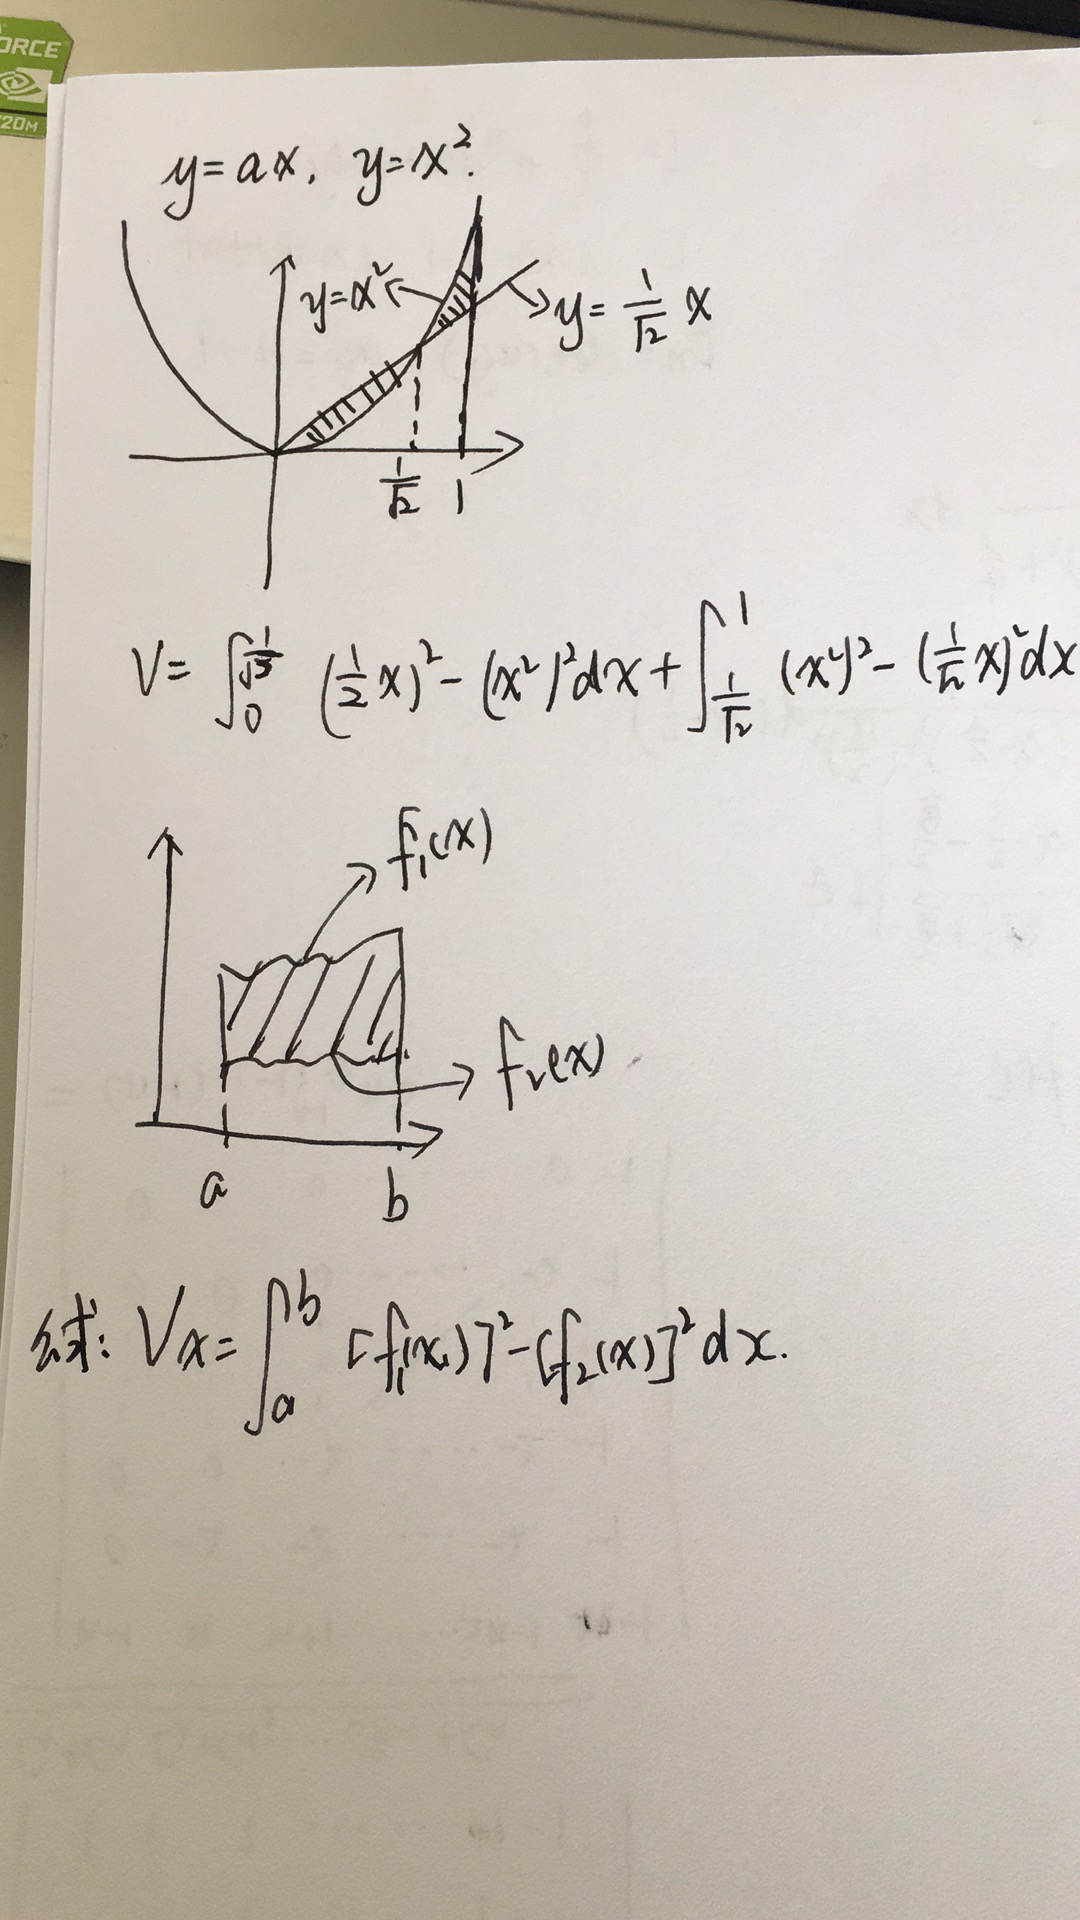 ORCE
20M
y=ax, y=x².
y=x²
y=1/√2 x
1/√2 1
V=∫₀^(1/√3) (1/2 x)²-(x²)²dx+∫_(1/√2)^1 (x²)²-(1/√2 x)²dx
f₁(x)
f₂(x)
a b
公式: Vx=∫ₐᵇ [f₁(x)]²-[f₂(x)]²dx.